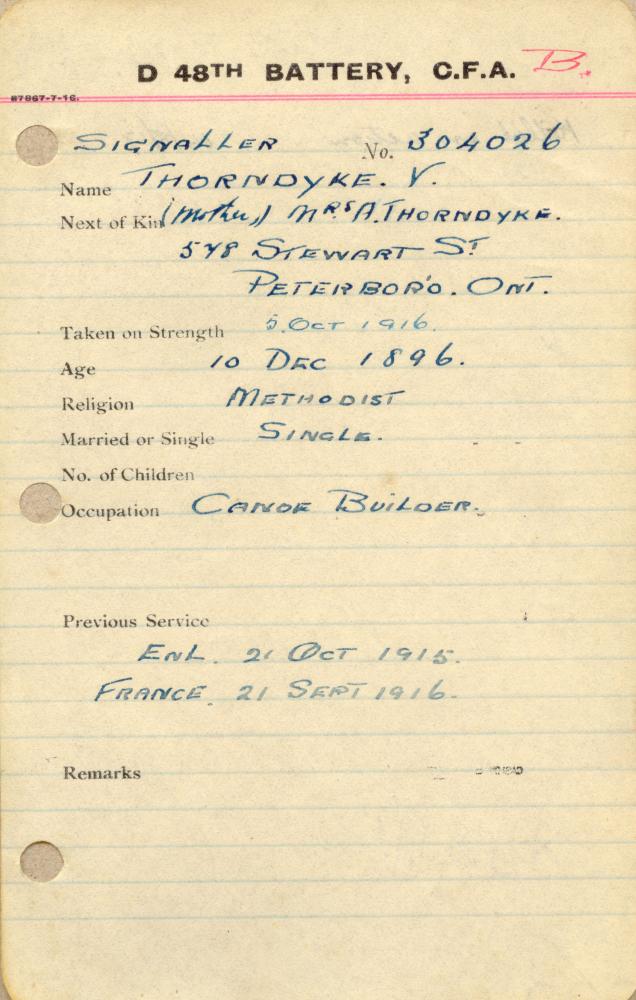 D 48TH BATTERY, C.F.A. B.
87867-7-16.
SIGNALLER No. 304026
Name THORNDYKE. V.
Next of Kin (Mother,) MRS A. THORNDYKE.
578 STEWART ST
PETERBORO. ONT.
Taken on Strength 5. OCT 1916.
Age 10 DEC 1896.
Religion METHODIST
Married or Single SINGLE.
No. of Children
Occupation CANOE BUILDER.
Previous Service
ENL. 21 OCT 1915.
FRANCE. 21 SEPT 1916.
Remarks